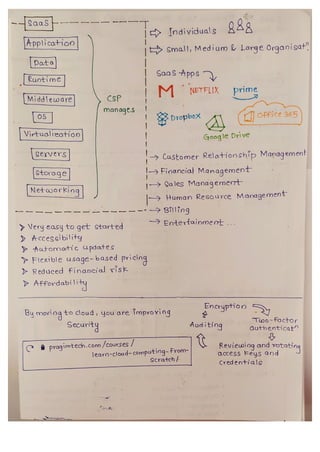 SaaS
Application
Data
Runtime
Middleware
OS
Virtualization
Servers
Storage
Networking
CSP
manages
⇒ Individuals
⇒ Small, Medium & Large Organisatⁿ
SaaS Apps
M NETFLIX prime
Dropbox Office 365
Google Drive
→ Customer Relationship Management
→ Financial Management
→ Sales Management
→ Human Resource Management
→ Billing
→ Entertainment ...
➢ Very easy to get started
➢ Accessibility
➢ Automatic updates
➢ Flexible usage-based pricing
➢ Reduced Financial risk
➢ Affordability
By moving to cloud, you are improving
Security
Encryption
&
Auditing
Two-Factor
authenticatⁿ
Reviewing and rotating
access keys and
credentials
pragimtech.com/courses/
learn-cloud-computing-from-
scratch/